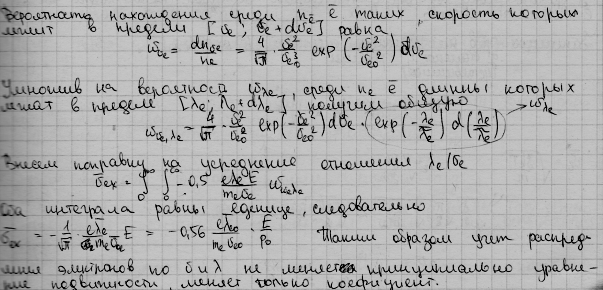 Вероятность нахождения среди nₑ ē таких, скорость которых
лежит в пределе [σₑ; σₑ+dσₑ] равна
w_σₑ = dn_σₑ/nₑ = 4/√π · σₑ²/σₑ₀³ exp(-σₑ²/σₑ₀²) dσₑ
Умножив на вероятность w_λₑ, среди nₑ ē длинны которых
лежат в пределе [λₑ; λₑ+dλₑ], получим общую
w_σₑ,λₑ = 4/√π · σₑ²/σₑ₀² exp(-σₑ²/σₑ₀²) dσₑ · exp(-λₑ/λ̄ₑ) d(λₑ/λ̄ₑ) → w_λₑ
Внесем поправку на усреднение отношения λₑ/σₑ
σ̄ₑₓ = ∫₀^∞ ∫₀^∞ -0,5 eλₑE/mₑσₑ w_σₑλₑ
Оба интеграла равны единице, следовательно
σ̄ₑₓ = -1/√π eλ̄ₑ/mₑσₑ E = -0,56 eλ̄ₑ₀/mₑσₑ₀ · E/p₀ Таким образом учет распреде-
ления электронов по σ и λ не меняет принципиально уравне-
ние подвижности, меняет только коефициент.